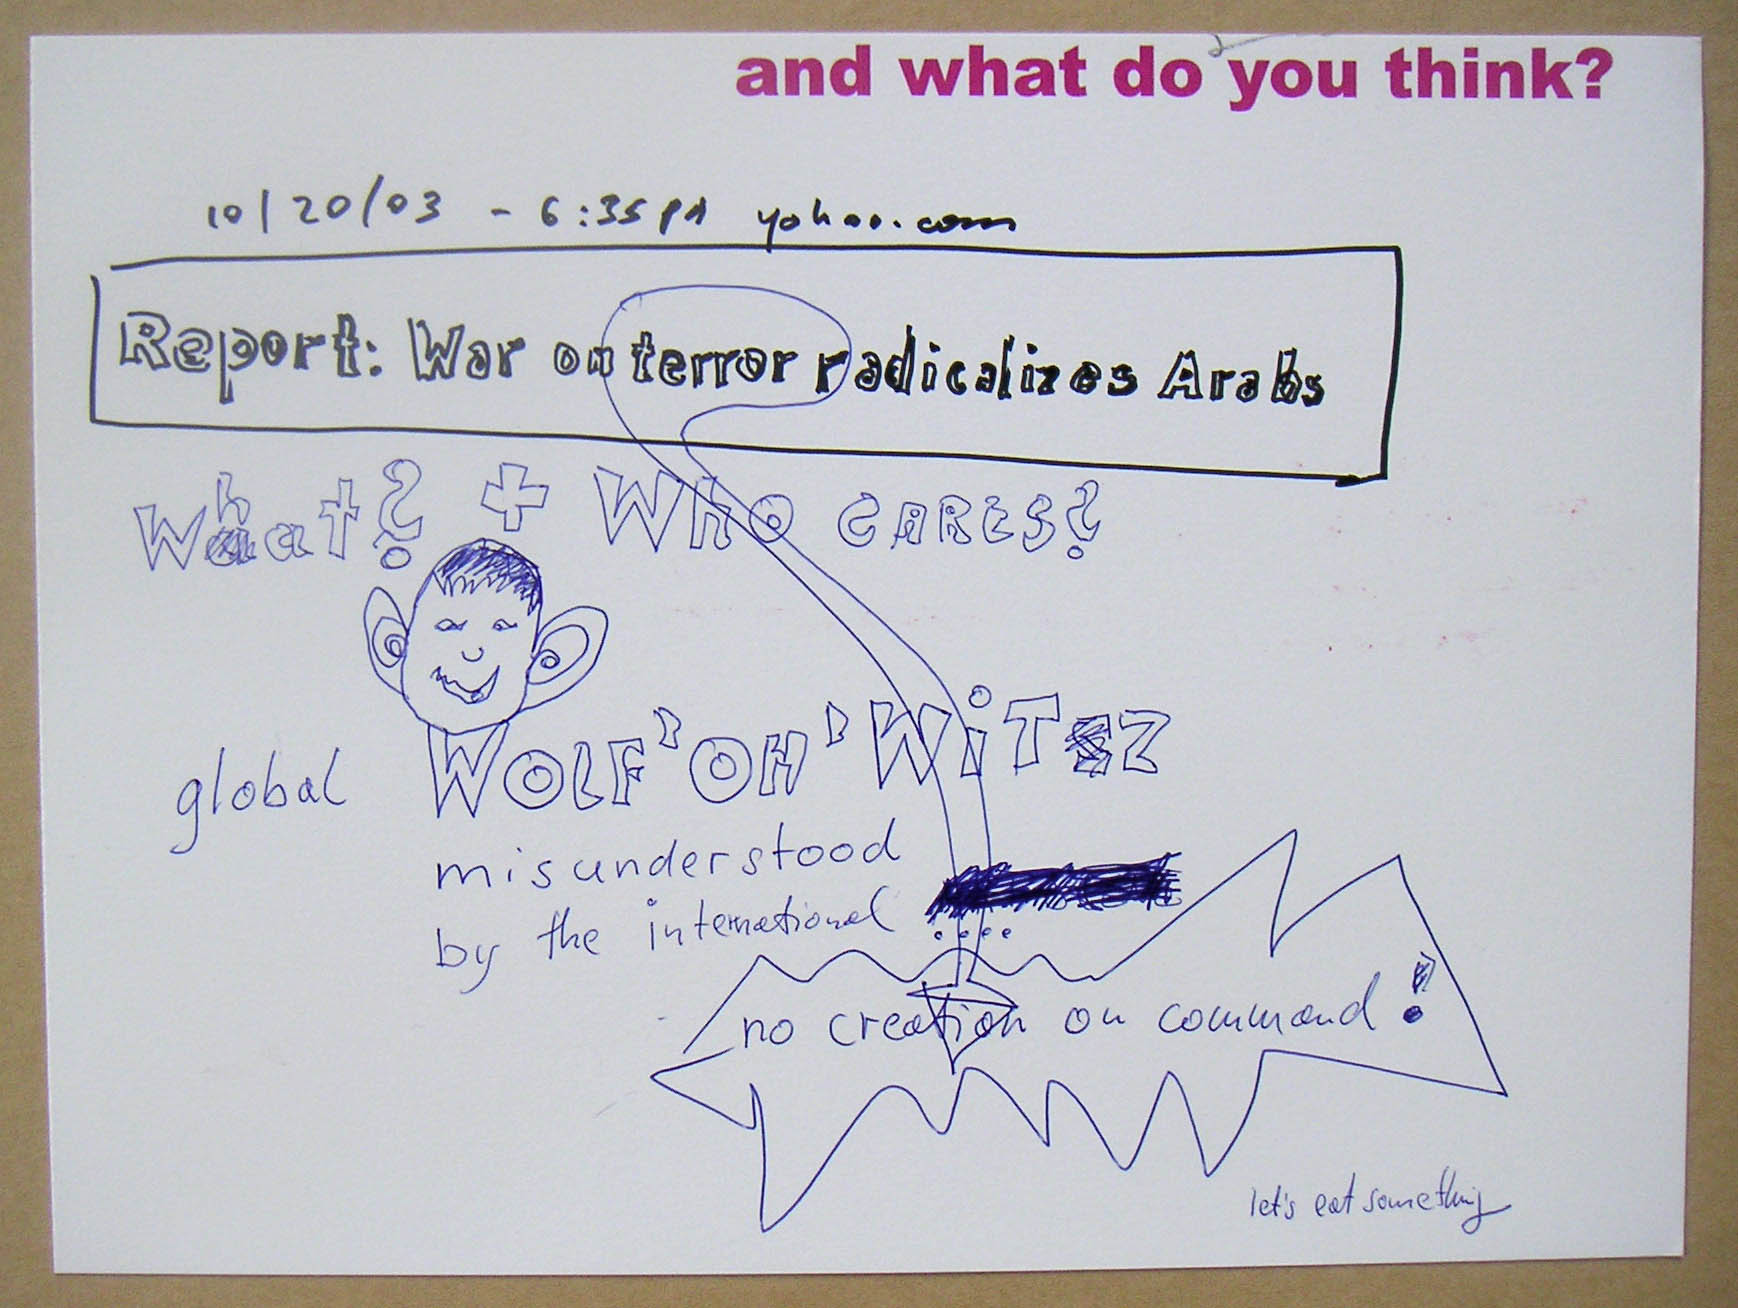 and what do you think?
10/20/03 - 6:35 PM yahoo.com
Report: War on terror radicalizes Arabs
What? + WHO CARES?
global WOLF'OH'WiTZ
misunderstood
by the international
....
no creation on command!
let's eat something